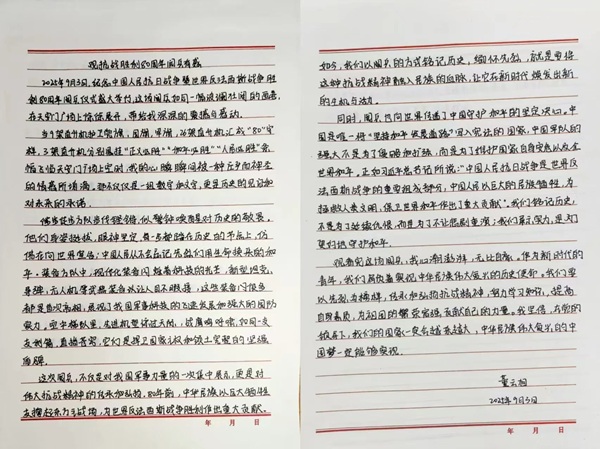 观抗战胜利80周年阅兵有感
2025年9月3日,纪念中国人民抗日战争暨世界反法西斯战争胜
利80周年阅兵仪式盛大举行,这场阅兵如同一幅波澜壮阔的画卷,
在天安门广场上徐徐展开,带给我深深的震撼与感动。
当多架直升机护卫党旗、国旗、军旗,26架直升机汇成“80”字
样,3架直升机分别悬挂“正义必胜”“和平必胜”“人民必胜”条
幅飞临天安门广场上空时,我的心瞬间被一种庄重而神圣
的情感所填满。那不仅仅是一组数字和文字,更是历史的见证和
对未来的承诺。
他们身姿挺拔,眼神坚定,每一步都踏在历史的节点上,仿
佛在向世界宣告:中国人民从不会忘记先辈们用生命换来的和
平。装备方队中,现代化装备闪烁着科技的光芒,新型坦克、
导弹、无人机等武器装备让人目不暇接,这些装备有很多
都是首次亮相,展现了我国军事科技的飞速发展和强大的国防
实力。空中梯队里,先进机型掠过天际,战鹰呼啸,如同一支
支利箭,直插苍穹,它们是捍卫国家主权和领土完整的坚强
盾牌。
这次阅兵,不仅是对我国军事力量的一次集中展示,更是对
伟大抗战精神的传承和弘扬。80年前,中华民族以巨大牺牲
支撑起东方主战场,为世界反法西斯战争胜利作出重大贡献。
年 月 日
如今,我们以阅兵的方式铭记历史,缅怀先烈,就是要将
这种抗战精神融入民族的血脉,让它在新时代焕发出新
的生机与活力。
同时,阅兵也向世界传递了中国守护和平的坚定决心。中
国是唯一将“坚持和平发展道路”写入宪法的国家,中国军队的
强大不是为了侵略和扩张,而是为了维护国家自身安全以及全
世界和平。正如习近平总书记所说:“中国人民抗日战争是世界反
法西斯战争的重要组成部分,中国人民以巨大的民族牺牲,为
拯救人类文明、保卫世界和平作出了重大贡献”。我们铭记历史,
不是为了延续仇恨,而是为了不让悲剧重演;我们展示实力,是为了
更好地守护和平。
观看完这场阅兵,我心潮澎湃,无比自豪。作为新时代的
青年,我们肩负着实现中华民族伟大复兴的历史使命。我们要
以先烈为榜样,传承和弘扬抗战精神,努力学习知识,提高
自身素质,为祖国的繁荣富强贡献自己的力量。我坚信,在党的
领导下,我们的国家一定会越来越强大,中华民族伟大复兴的中
国梦一定能够实现。
2025年9月3日
年 月 日